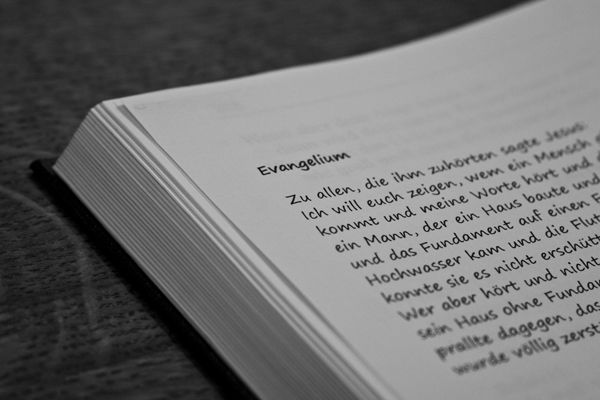 Evangelium
Zu allen, die ihm zuhörten sagte Jesus:
Ich will euch zeigen, wem ein Mensch
kommt und meine Worte hört und
ein Mann, der ein Haus baute und
und das Fundament auf einen
Hochwasser kam und die Flut
konnte sie es nicht erschütt
Wer aber hört und nicht
sein Haus ohne Fundam
prallte dagegen, das
wurde völlig zerst